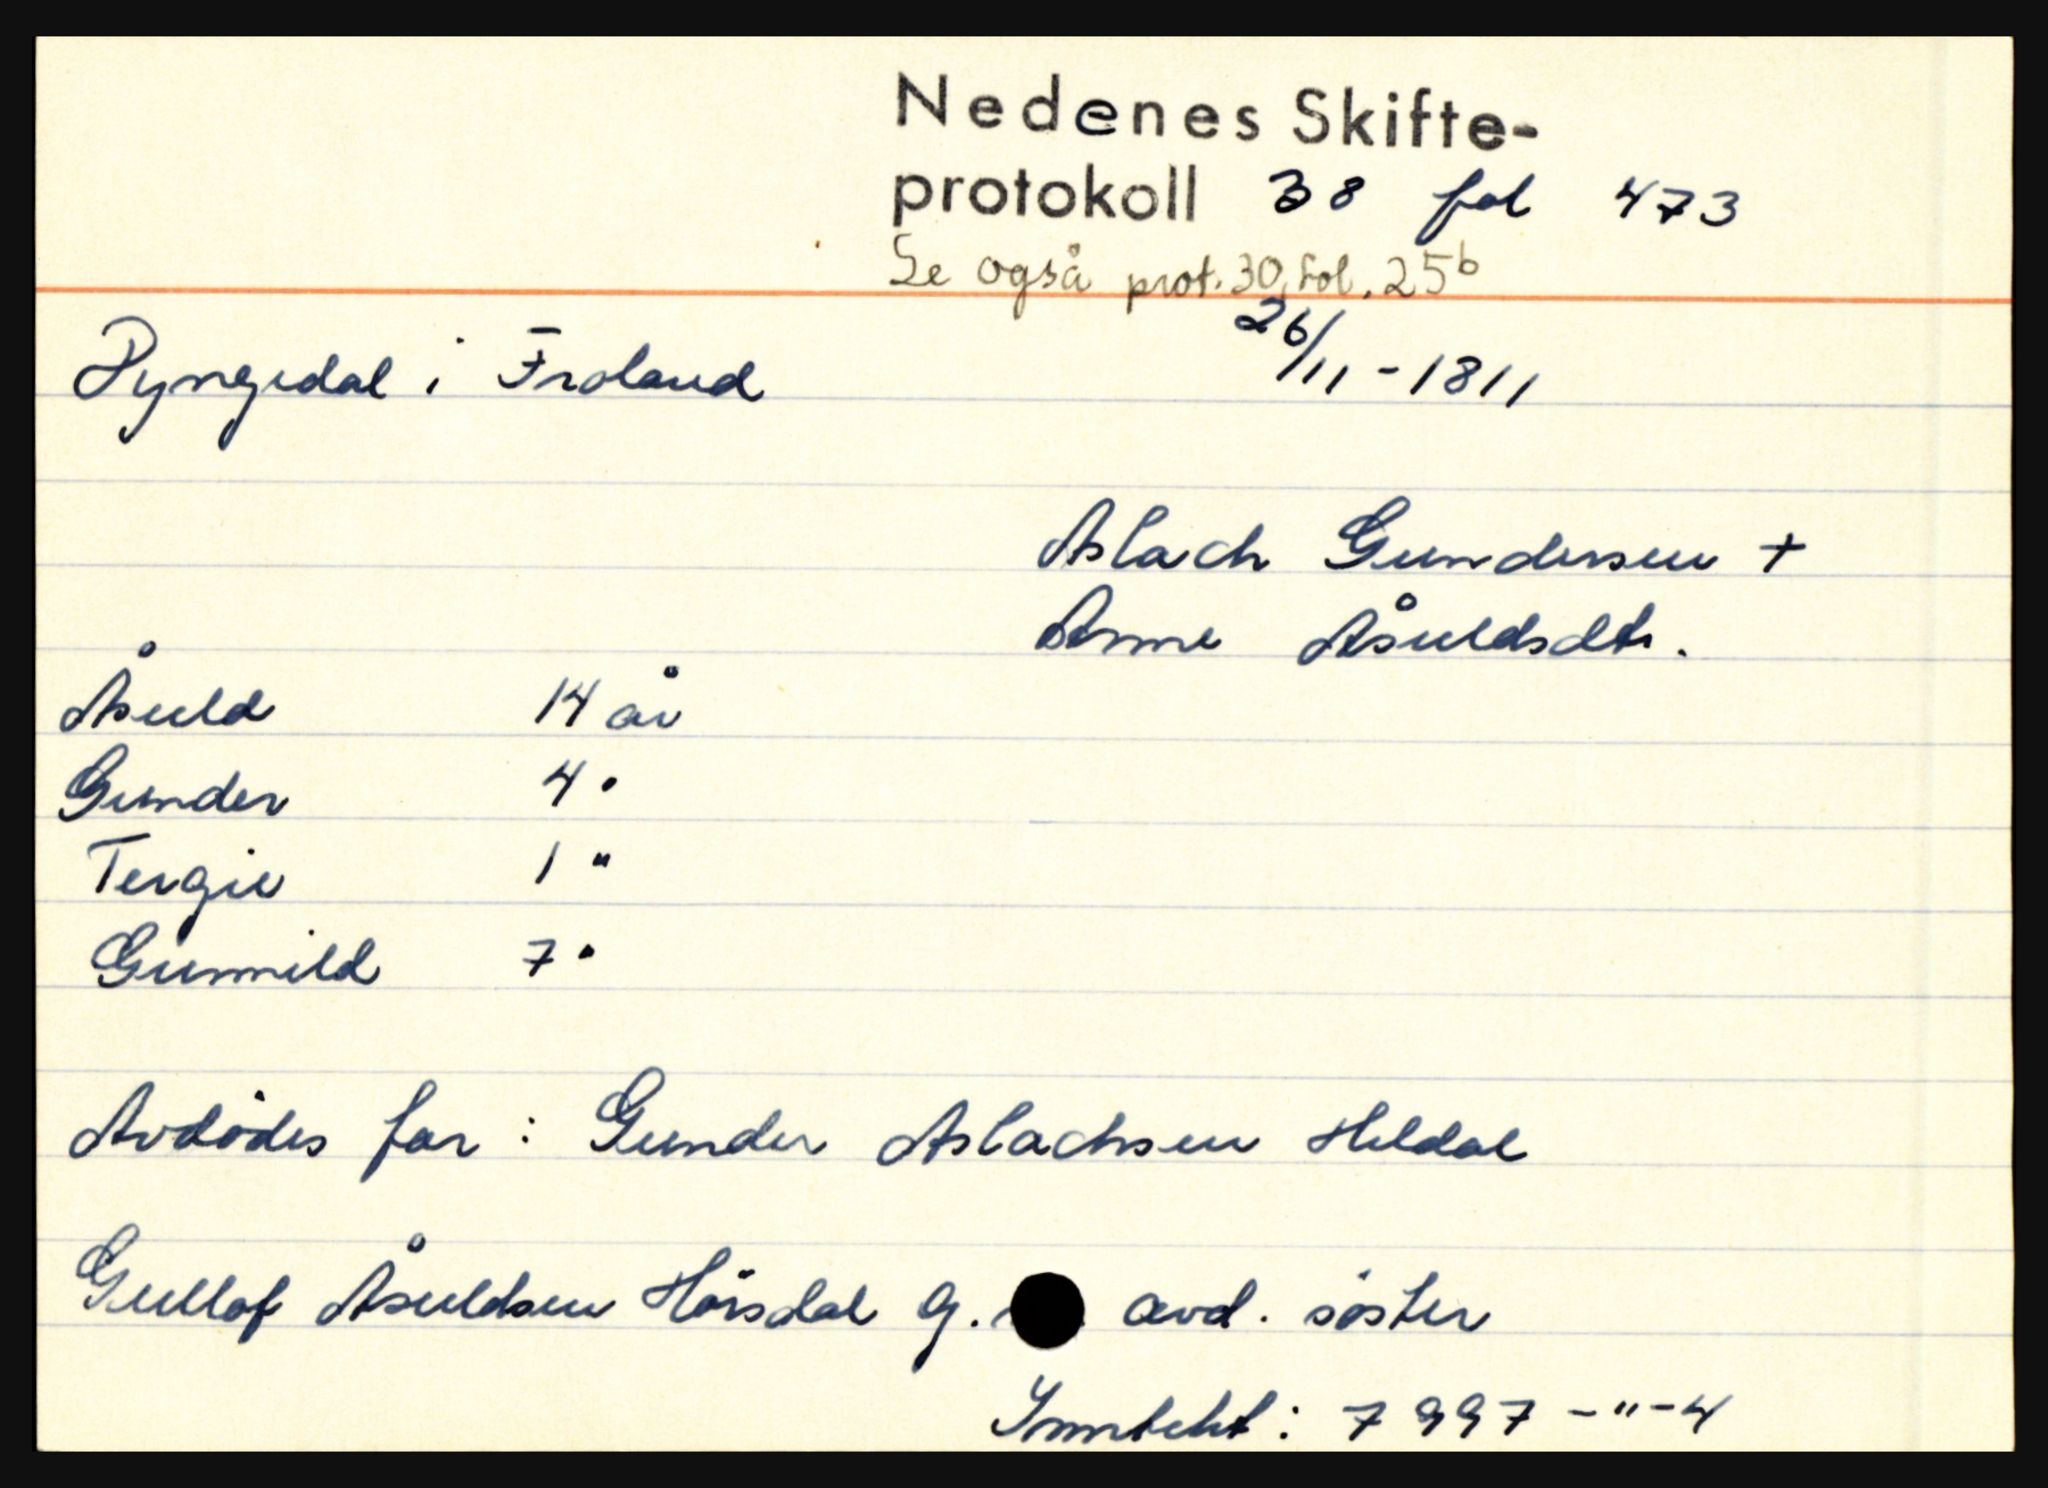 Nedenes Skifte-
protokoll 38 fol 473
Se også prot. 30, fol. 25b
Pyngedal i Froland 26/11-1811
Aslach Gundersen +
Anne Åsuldsdtr.
Åsuld 14 år
Gunder 4 "
Tergie 1 "
Gunnild 7 "
Avdödes far : Gunder Aslachsen Heldal
Gullof Åsuldsen Hörsdal g. avd. söster
Inntekt : 7997 - " - 4